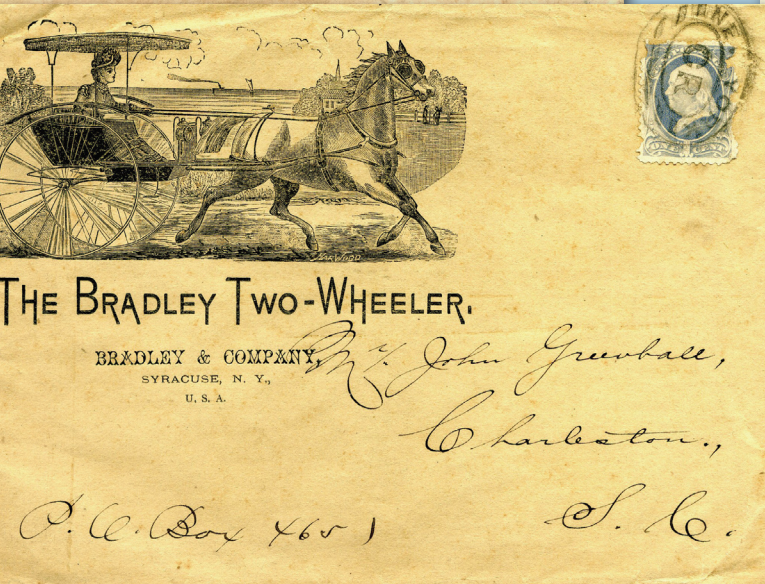 THE BRADLEY TWO-WHEELER.
BRADLEY & COMPANY,
SYRACUSE, N. Y.,
U. S. A.
Mr. John Greenball,
Charleston.,
S. C.
P. O. Box 465)